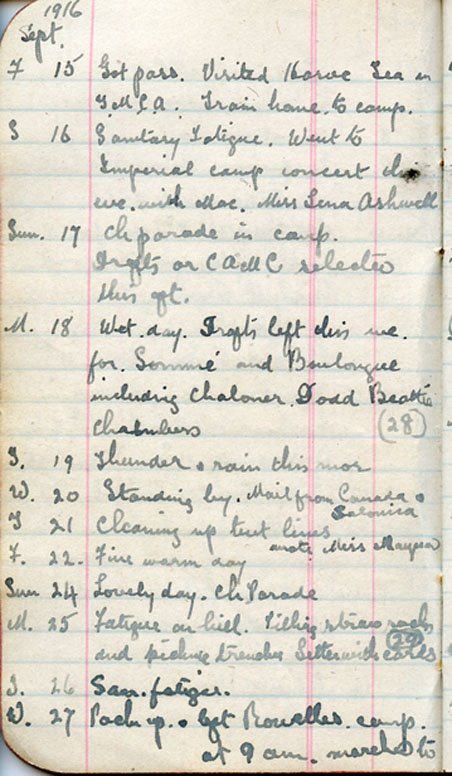 1916
Sept.
F 15 Got pass. Visited Tea in
Y.M.C.A. Train home to camp.
S 16 Sanitary Fatigue. Went to
Imperial camp concert this
eve. with Mac. Miss Lena Ashwell
Sun. 17 Ch parade in camp.
Drafts or C A M C selected
this aft.
M. 18 Wet day. Drafts left this eve.
for Sommé and Boulongue
including Chaloner. Dodd Beattie
Chambers (28)
T. 19 Thunder & rain this mor
W. 20 Standing by. Mail from Canada &
Salonica
T 21 Cleaning up tent lines
wrote Miss
F. 22. Fine warm day
Sun 24 Lovely day. Ch Parade
M. 25 Fatigue on hill. Filling straw sacks
(29)
and picking trenches Letter with cards
T. 26 San. fatigue.
W. 27 Pack up. & left Rowelles camp.
at 9 am. marched to